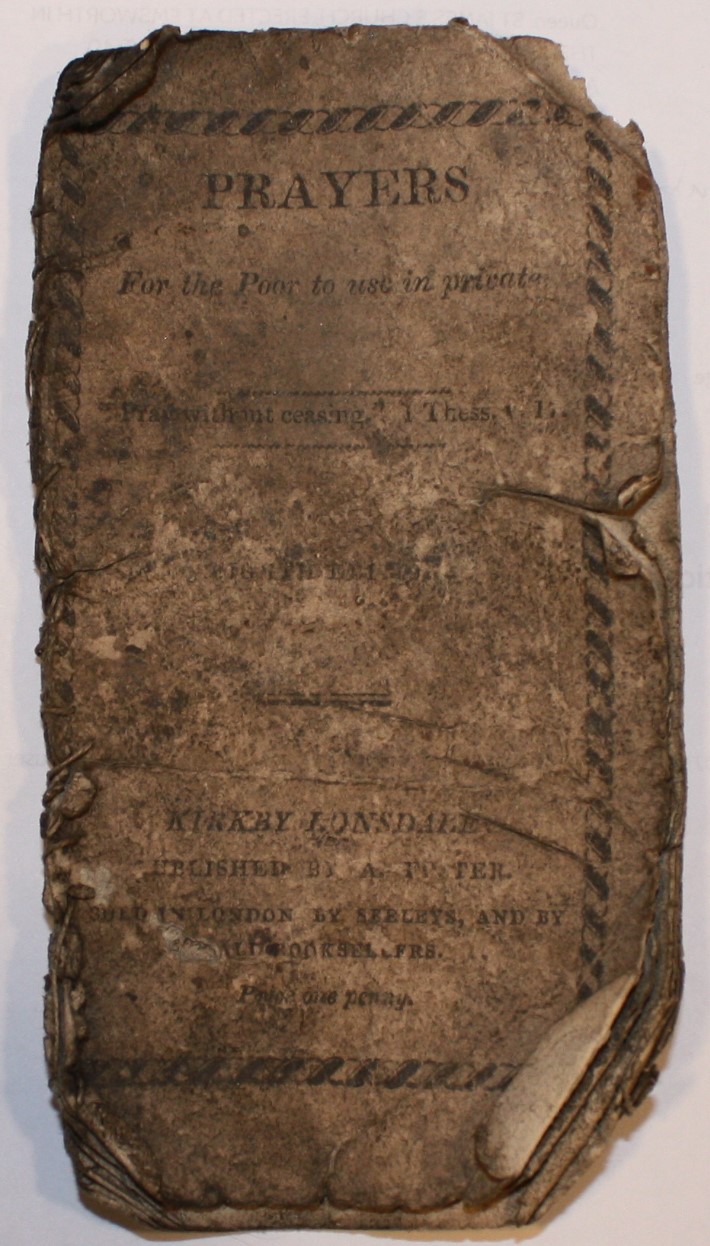 PRAYERS
For the Poor to use in private.
"Pray without ceasing." 1 Thess. v.
EIGHTH
KIRKBY LONSDALE
PUBLISHED BY A.
SOLD IN LONDON BY SEELEYS, AND BY
ALL BOOKSELLERS.
Price one penny.